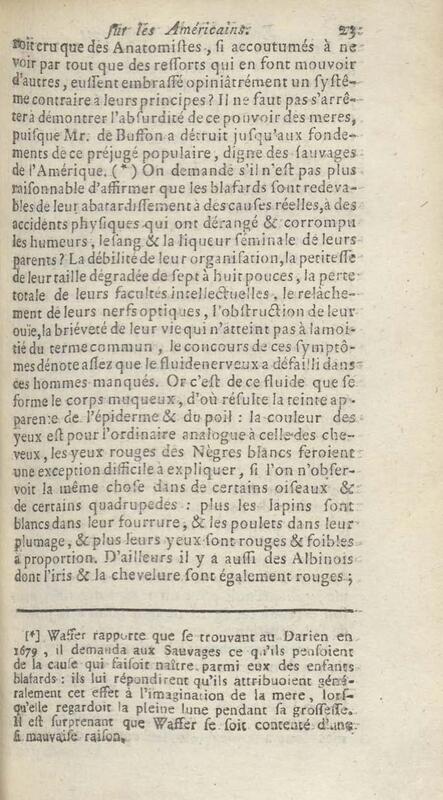 sur les Américains. 23
roit cru que des Anatomistes, si accoutumés à ne
voir par tout que des ressorts qui en font mouvoir
d'autres, eussent embrassé opiniâtrément un systê-
me contraire à leurs principes? Il ne faut pas s'arrê-
ter à démontrer l'absurdité de ce pouvoir des meres,
puisque Mr. de Buffon a détruit jusqu'aux fonde-
ments de ce préjugé populaire, digne des sauvages
de l'Amérique. (*) On demande s'il n'est pas plus
raisonnable d'affirmer que les blafards sont redeva-
bles de leur abatardissement à des causes réelles, à des
accidents physiques qui ont dérangé & corrompu
les humeurs, le sang & la liqueur séminale de leurs
parents? La débilité de leur organisation, la petitesse
de leur taille dégradée de sept à huit pouces, la perte
totale de leurs facultés intellectuelles, le relâche-
ment de leurs nerfs optiques, l'obstruction de leur
ouïe, la briéveté de leur vie qui n'atteint pas à la moi-
tié du terme commun, le concours de ces symptô-
mes dénote assez que le fluide nerveux a défailli dans
ces hommes manqués. Or c'est de ce fluide que se
forme le corps muqueux, d'où résulte la teinte ap-
parente de l'épiderme & du poil : la couleur des
yeux est pour l'ordinaire analogue à celle des che-
veux, les yeux rouges des Nègres blancs feroient
une exception difficile à expliquer, si l'on n'obser-
voit la même chose dans de certains oiseaux &
de certains quadrupedes : plus les lapins sont
blancs dans leur fourrure, & les poulets dans leur
plumage, & plus leurs yeux sont rouges & foibles
à proportion. D'ailleurs il y a aussi des Albinois
dont l'iris & la chevelure sont également rouges ;
[*] Waffer rapporte que se trouvant au Darien en
1679, il demanda aux Sauvages ce qu'ils pensoient
de la cause qui faisoit naître parmi eux des enfants
blafards : ils lui répondirent qu'ils attribuoient géné-
ralement cet effet à l'imagination de la mere, lors-
qu'elle regardoit la pleine lune pendant sa grossesse.
Il est surprenant que Waffer se soit contenté d'une
si mauvaise raison.